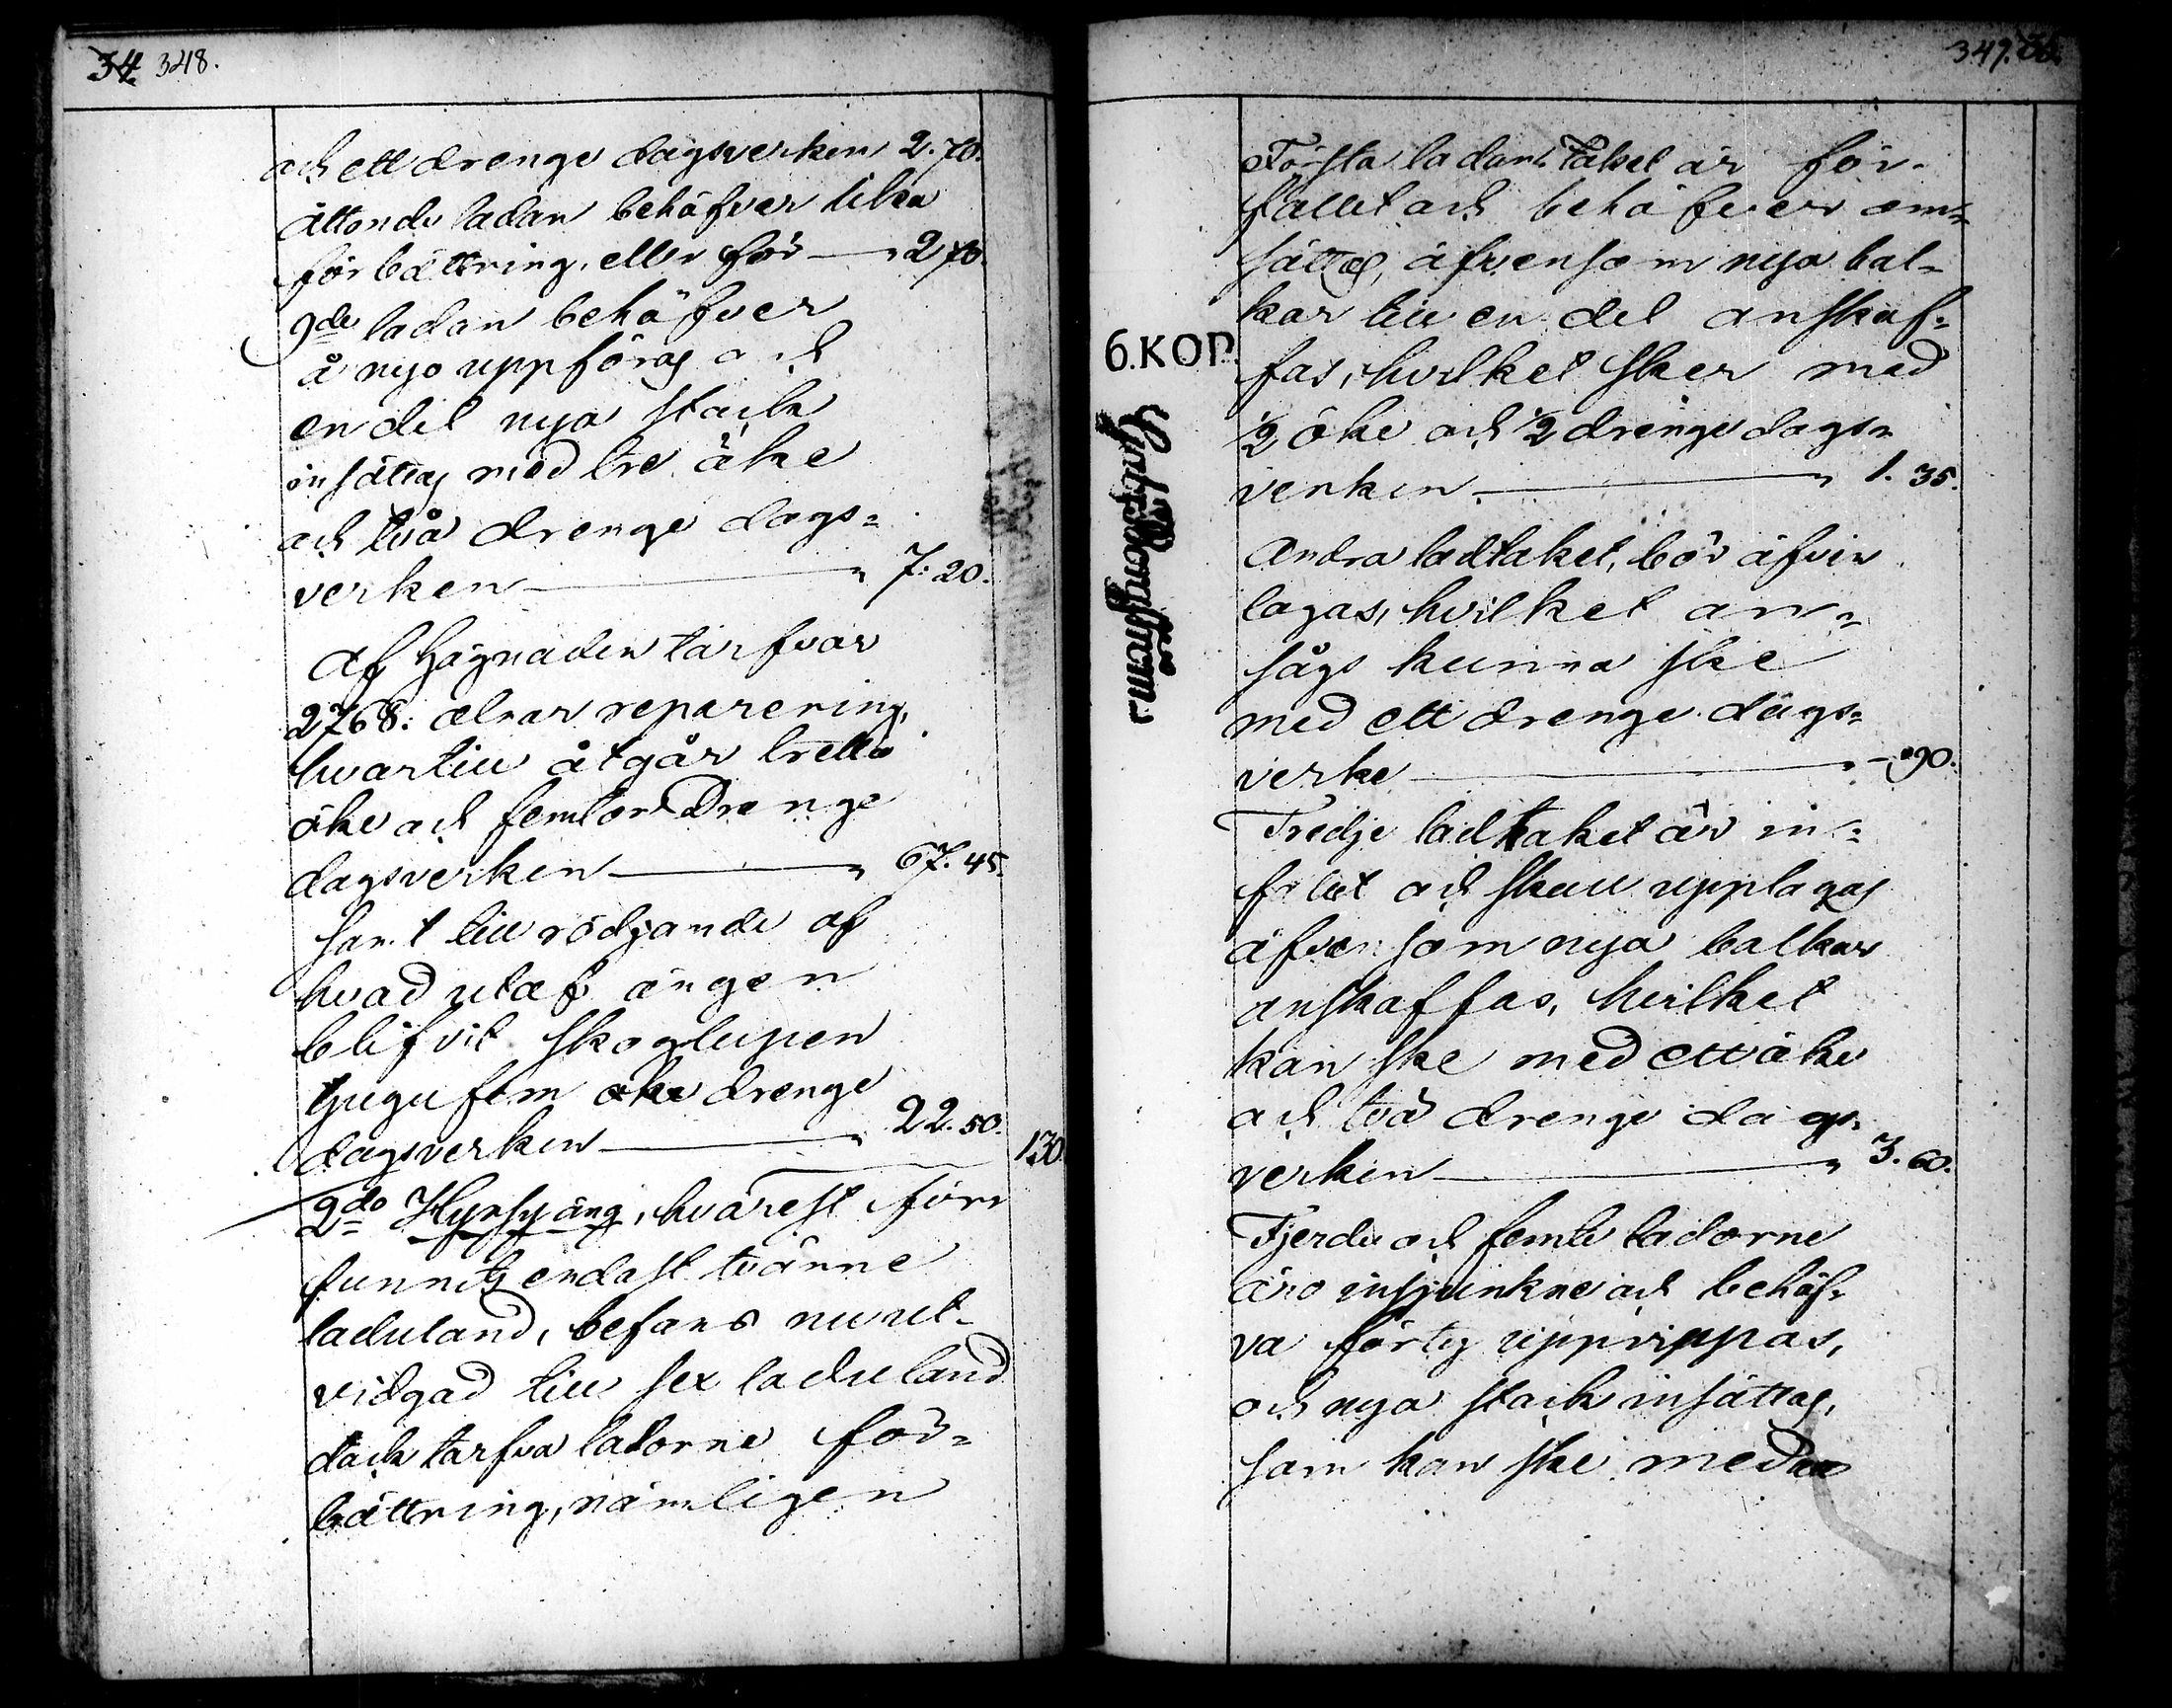 34 348.
och ett drenge dagsverken 2.70.
Åttonde ladan behöfver lika
förbättring, eller för — " 2.70.
9de ladan behöfver
å nyo uppföras och
en del nya stäck
insättas med tre öke
och två drenge dags=
verken — " 7:20.
Af Hägnaden tarfvar
2768: alnar reparering,
hvartill åtgår tretto
öke och femton Drenge
dagsverken — " 67.45.
samt till rödjande af
hvad utaf ängen
blifvit skoglupen
tjugufem drenge
dagsverken — " 22.50. 130.
2do Hyrsyäng, hvarest förr
funnits endast tvänne
laduland, befans nu ut-
vidgad till sex laduland
dock tarfva ladorne för=
bättring, nämligen
349.
Första ladans taket är för-
fallet och behöfver om=
sättas, äfvensom nya bal-
kar till en del anskaf=
fas, hvilket sker med
½ öke och ½ drenge dags=
verken — " 1.35.
Andra ladtaket, bör äfven
lagas, hvilket an=
sågs kunna ske
med ett drenge dags=
verke — " - 90.
Tredje ladtaket är in=
fallet och skall upplagas
äfvensom nya balkar
anskaffas, hvilket
kan ske med ett öke
och två drenge dags=
verken — " 3.60.
Fjerde och femte ladorne
äro insjunkne och behöf=
va förty uppvippas,
och nya stäck insättas,
som kan ske med
6.KOP.